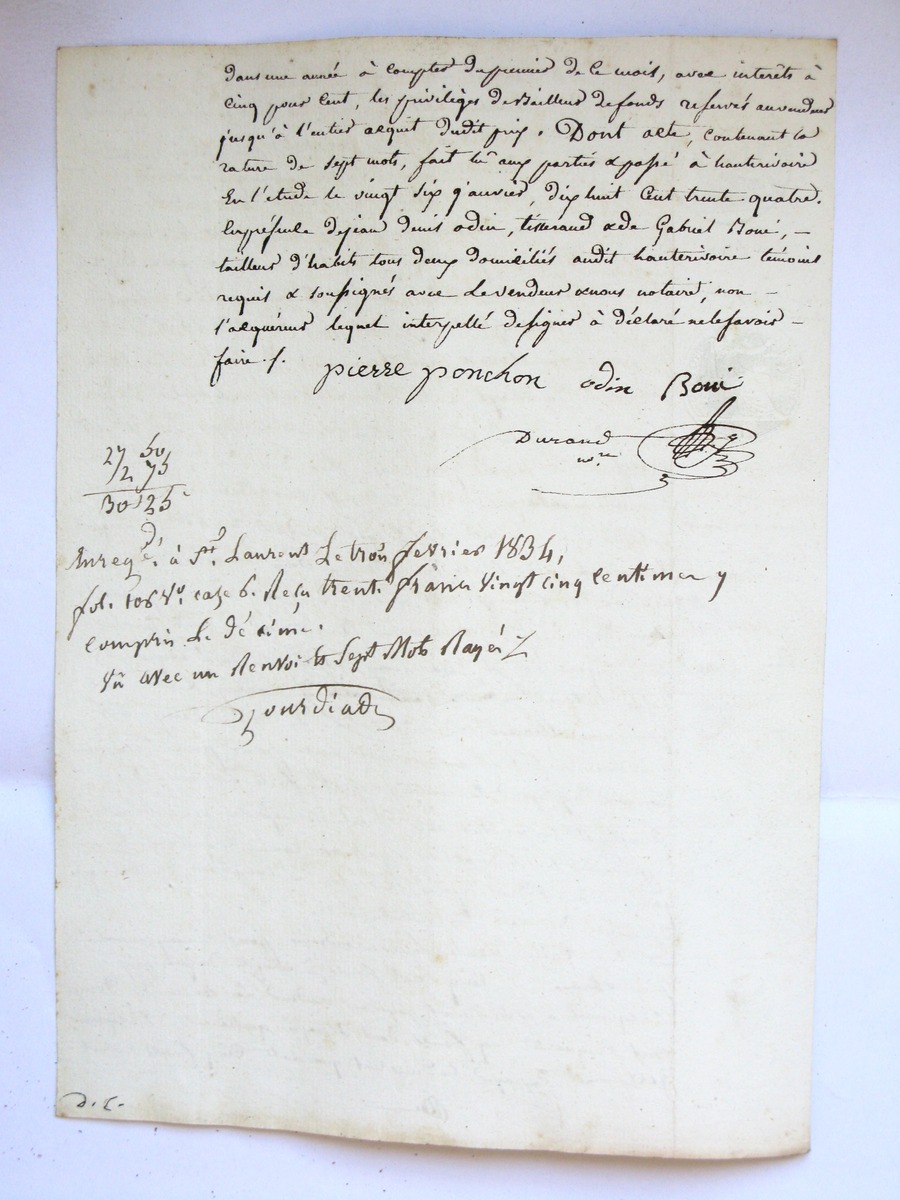 dans une année à compter du premier de ce mois, avec interêts à
cinq pour cent, les privilèges de Bailleur de fonds reservés au vendeur
jusqu'à l'entier acquit dudit prix. Dont acte, contenant la
rature de sept mots, fait lu aux parties & passé à hauterivoire
En l'étude le vingt six janvier, dix huit cent trente quatre.
En présence de jean denis odin, tisserand & de Gabriel Boué, –
tailleur d'habits tous deux domiciliés audit hauterivoire témoins
requis & soussignés avec le vendeur & nous notaire, non –
l'acquéreur lequel interpellé de signer à déclaré ne le savoir –
faire ./.
pierre ponchon odin Boué
Durand
nre
27 50
2 75
30 25
Enregé. à St. Laurent Le février 1834,
fol. 106 Vo. case 6. Reçu trente francs vingt cinq centimes y
compris le décime.
Vû avec un Renvoi & Sept Mots Rayés
D.C.